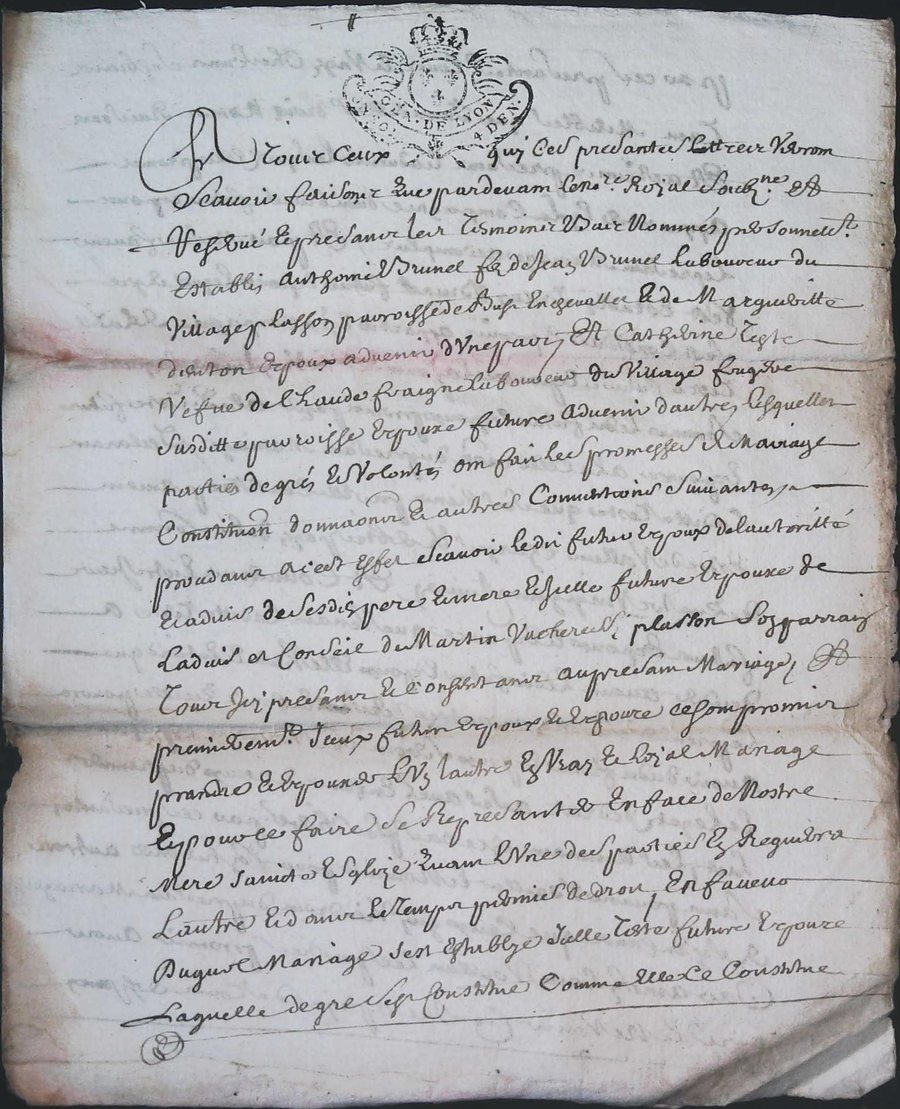 GEN. DE LYON
4 DEN.
A Tous Ceux quj Ces presantes lettres Verrom
Scavoir faisons Que pardevam Le no.re Royal Soubz.né Et
reservé Et presans les Tesmoins Bas Nommés personnell.t
Establis Anthoine Brunel filz de Jean Brunel Laboureur du
Village plasson parroisse de En chevalles Et de Margueritte
Espoux advenir d'Vne part Et Catherine Teste
Vefve de Claude fraigne Laboureur du Village fougere
Susditte parroisse Espouse future advenir d'autre, Lesquelles
parties de grés Et Volontés om fait les promesses de Mariage
Constitu͠on donna͠ons Et autres Conventions Suivantes
proceda͠ns a cest Effet Scavoir le dit futur Espoux de l'autoritté
Et advis de Sesdis pere Et mere Et Icelle future Espouse de
L'advis et Conseil de Martin plasson Son parrain
Tous Icy presans Et Consentans au presam Mariage, Et
premierem.t Iceux futur Espoux Et Espouse Se som promis
prandre Et Espouser L'Vn l'autre En Vray Et Loyal Mariage
Et pour ce faire Se Representer En face de Nostre
Mere Saincte Esglize Quam L'Vne des parties En Requerra
L'autre Et dans le Temps permis de droit, En faveur
Duquel Mariage s'est Establye Icelle Teste future Espouse
Laquelle de gré S'est Constitué Comme Elle Ce Constitue